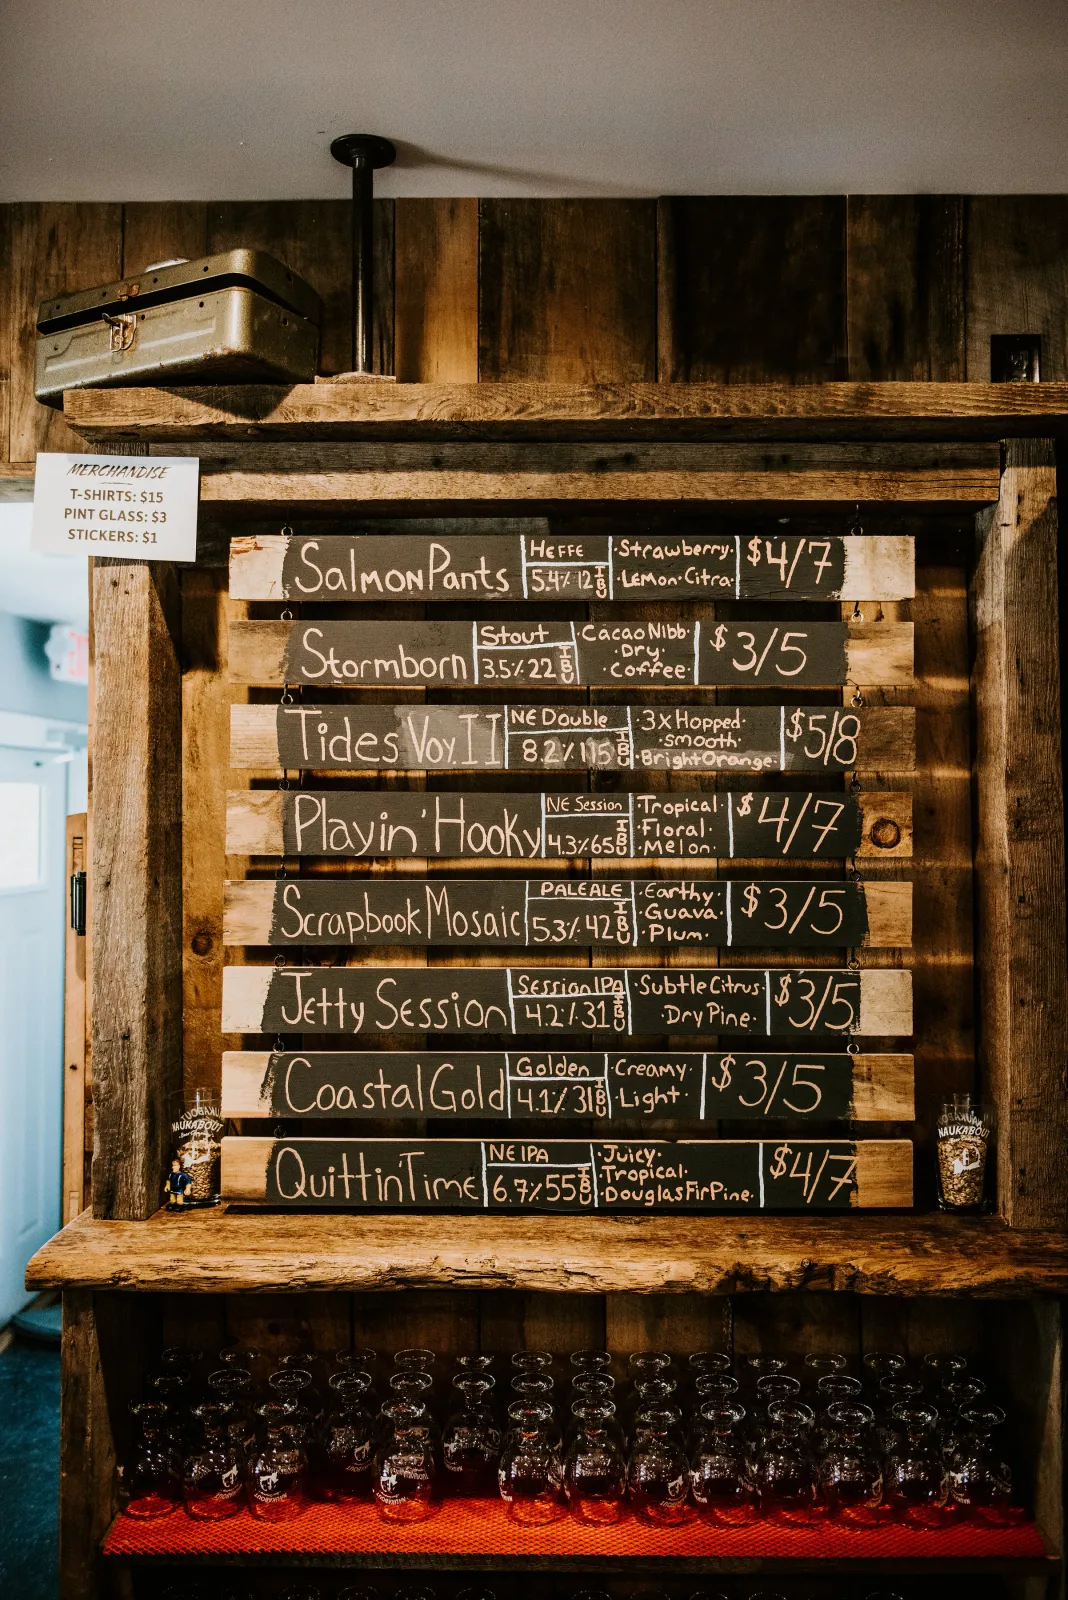 MERCHANDISE
T-SHIRTS: $15
PINT GLASS: $3
STICKERS: $1
SalmonPants
HEFFE
5.4% 12 IBU
·Strawberry·
·Lemon·Citra·
$4/7
Stormborn
Stout
3.5% 22 IBU
·Cacao Nibb·
·Dry·
·Coffee·
$3/5
Tides Voy. II
NE Double
8.2% 115 IBU
·3xHopped·
·smooth·
·BrightOrange·
$5/8
Playin' Hooky
NE Session
4.3% 65 IBU
·Tropical·
·Floral·
·Melon·
$4/7
Scrapbook Mosaic
PALE ALE
5.3% 42 IBU
·Earthy·
·Guava·
·Plum·
$3/5
Jetty Session
Session IPA
4.2% 31 IBU
·Subtle Citrus·
·Dry Pine·
$3/5
Coastal Gold
Golden
4.1% 31 IBU
·Creamy·
·Light·
$3/5
Quittin'Time
NE IPA
6.7% 55 IBU
·Juicy·
·Tropical·
·DouglasFirPine·
$4/7
NAUKABOUT
NAUKABOUT